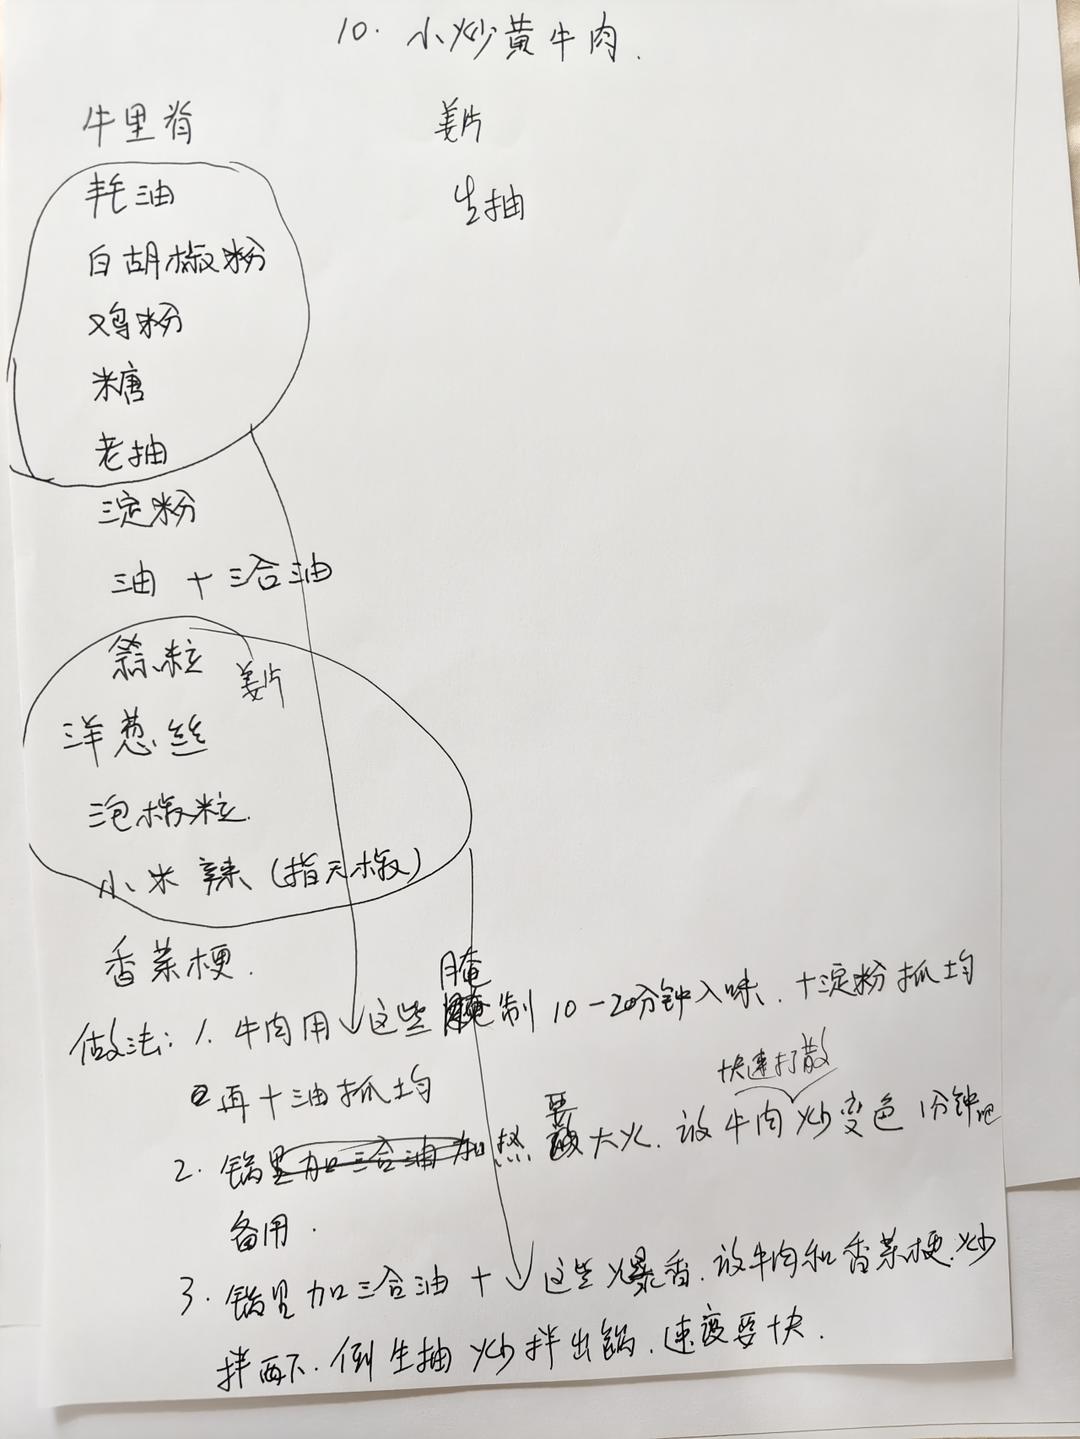 10. 小炒黄牛肉.
牛里脊
姜片
耗油
生抽
白胡椒粉
鸡粉
糖
老抽
淀粉
油 + 三合油
蒜粒 姜片
洋葱丝
泡椒粒.
小米辣 (指天椒)
香菜梗.
做法: 1. 牛肉用 这些 腌制 10-20分钟入味. +淀粉抓均
再+油抓均
快速打散
2. 锅热 要大火. 放牛肉炒变色 1分钟吧
备用.
3. 锅里加三合油 + 这些爆香. 放牛肉和香菜梗.炒
拌两下. 倒生抽炒拌出锅. 速度要快.